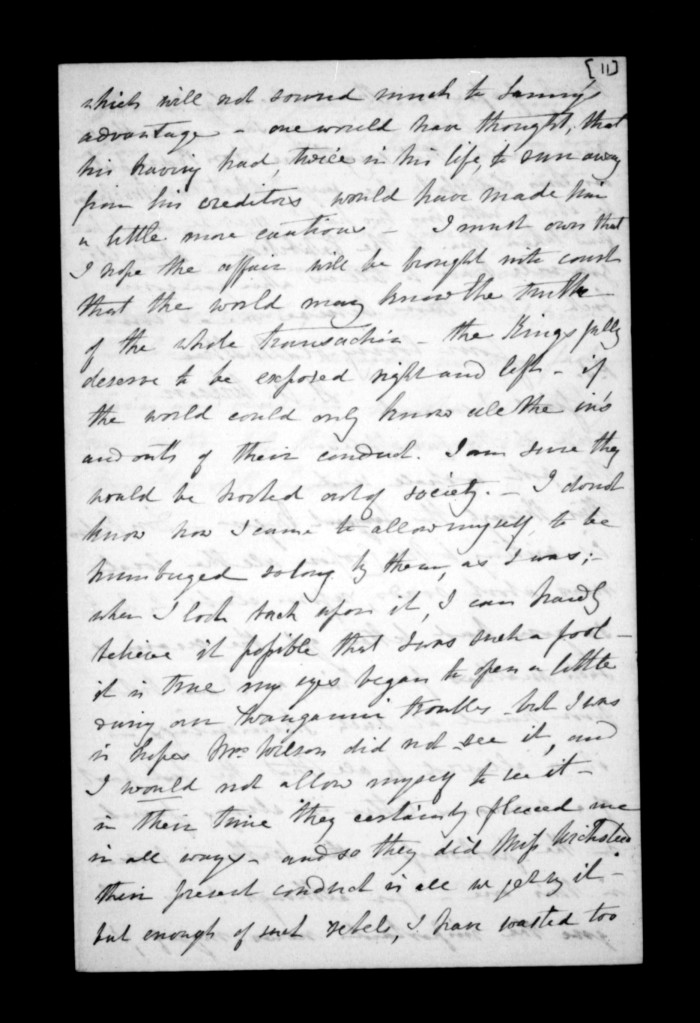 [11]
which will not sound much to Sammy's
advantage - one would have thought, that
his having had, twice in his life, to run away
from his creditors would have made him
a little more cautious - I must own that
I hope the affair will be brought into court
that the world may know the truth
of the whole transaction - the Kings fully
deserve to be exposed right and left - if
the world could only know all the in's
and out's of their conduct. I am sure they
would be hooted out of society. - I donot
know how I came to allow myself, to be
humbuged so long by them, as I was; -
when I look back upon it, I can hardly
believe it possible that I was such a fool -
it is true my eyes began to open a little
during our Wanganui troubles but I was
in hopes Mrs Wilson did not see it, and
I would not allow myself to see it -
in their time they certainly fleeced me
in all ways - and so they did Miss
their present conduct is all we get by it -
but enough of such rebels, I have wasted too